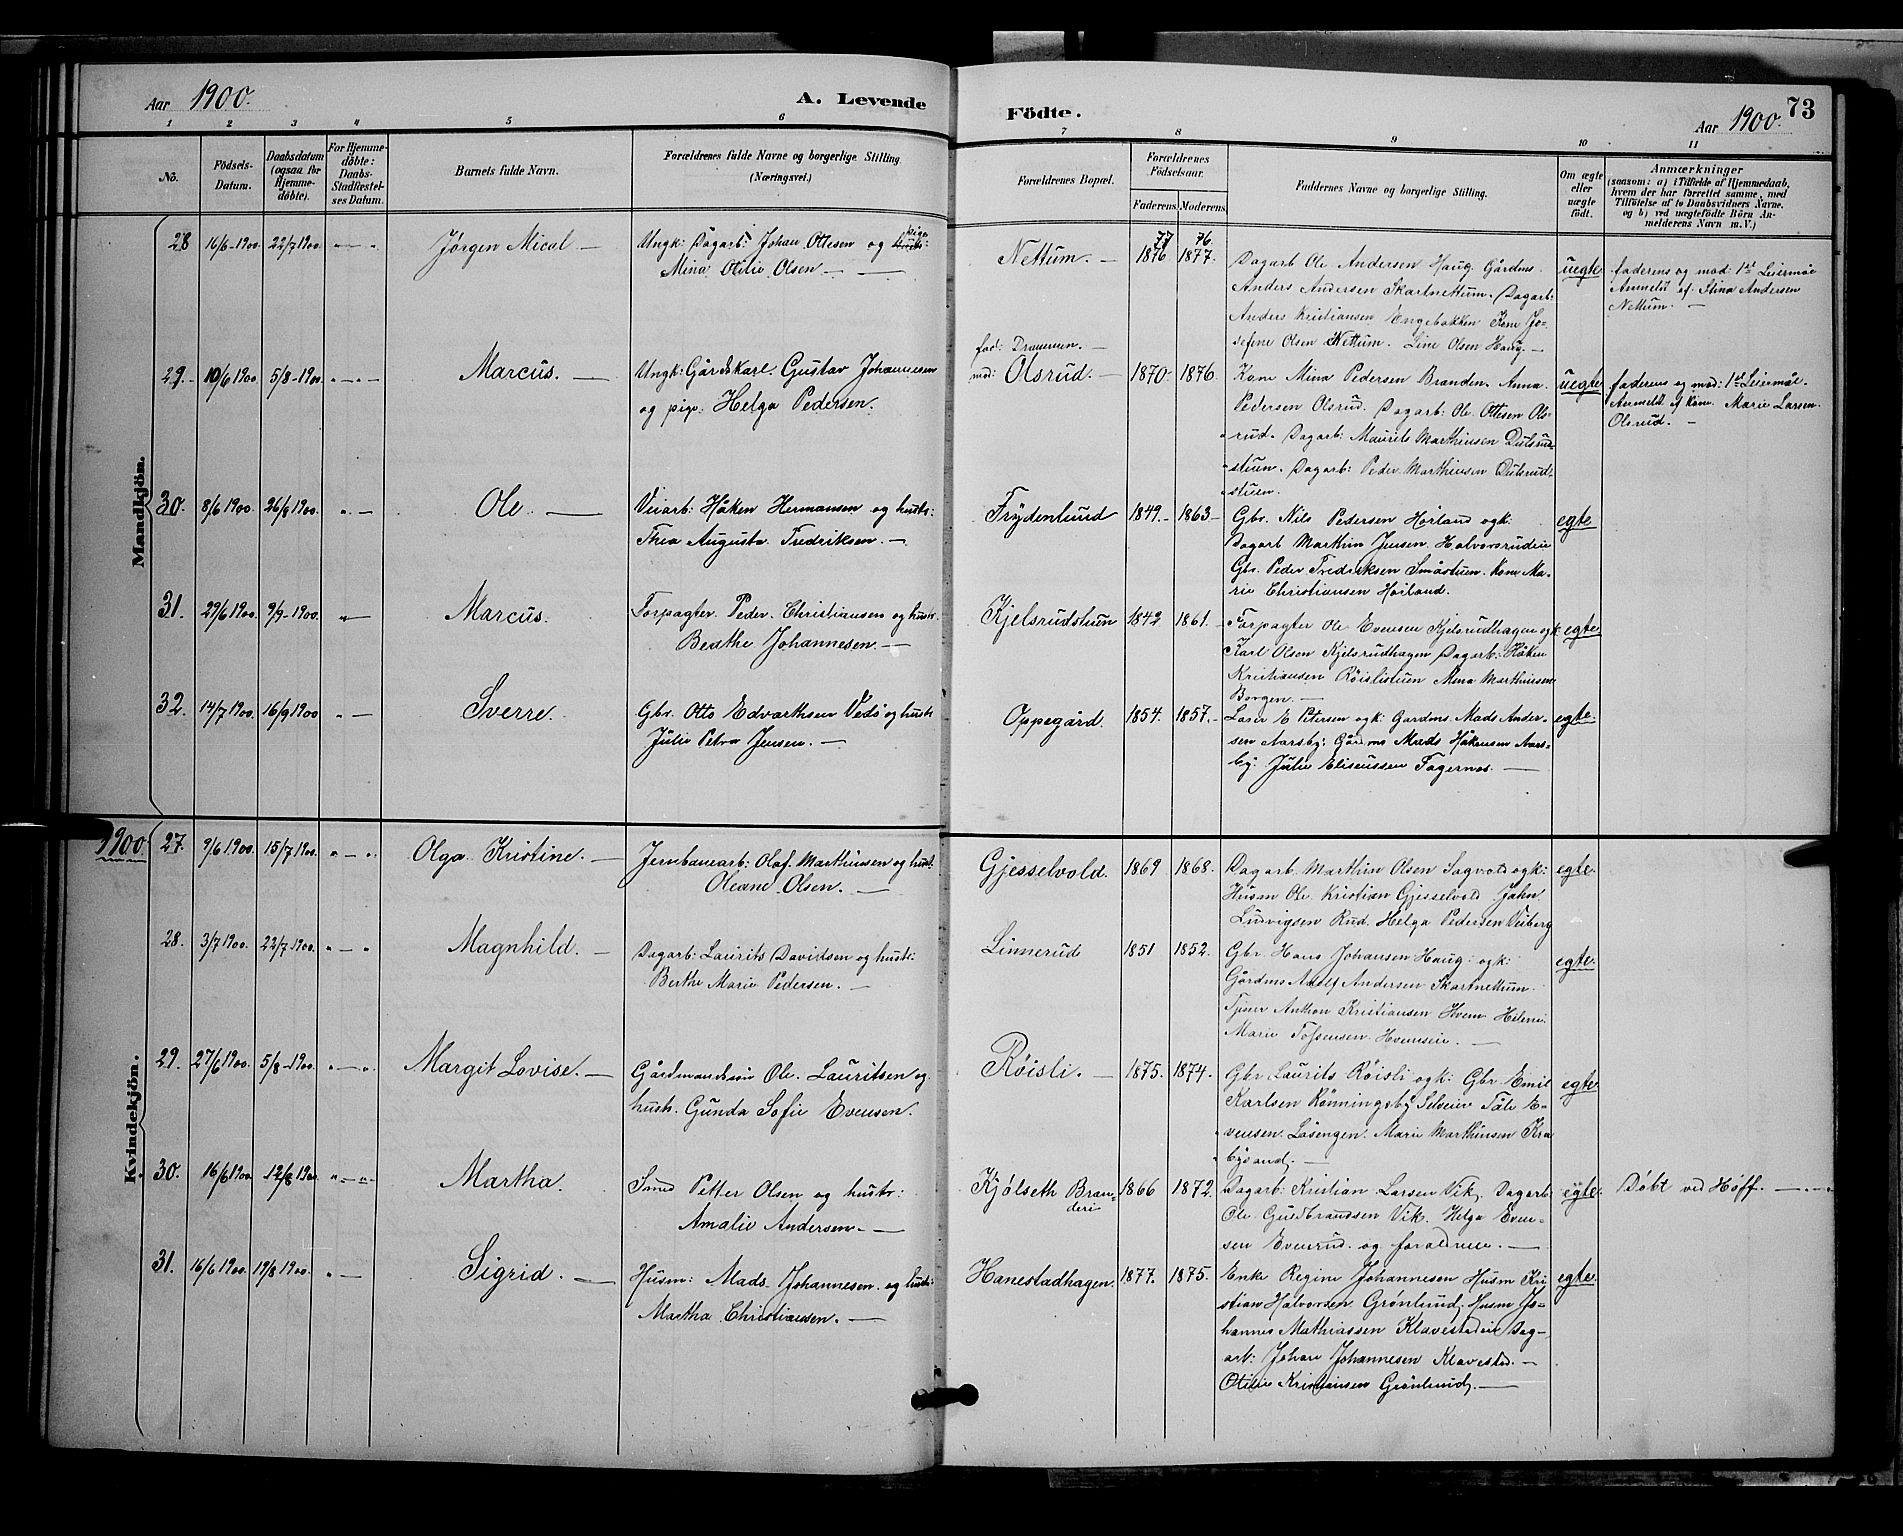 Aar 1900. A. Levende
Födte. Aar 1900. 73
1 2 3 4 5 6 7 8 9 10 11
No.
Födsels-
Datum.
Daabsdatum
(ogsaa for
Hjemme-
döbte).
For Hjemme-
döbte:
Daabs-
Stadfæstel-
ses Datum.
Barnets fulde Navn.
Forældrenes fulde Navne og borgerlige Stilling
(Næringsvei).
Forældrenes Bopæl.
Forældrenes
Födselsaar.
Faderens. Moderens.
Faddernes Navne og borgerlige Stilling.
Om ægte
eller
uægte
födt.
Anmærkninger
(saasom: a) i Tilfælde af Hjemmedaab,
hvem der har forrettet samme, med
Tilföielse af to Daabsvidners Navne.
og b) ved uægtefödte Börn An-
melderens Navn m. V.)
Mandkjön.
28 16/6-1900. 22/7 1900. " - " Jørgen Mical —
Ungk: Dagarb: Johan Ottesen og pige
Mina Otilie Olsen — —
Nettum. — 77 76
1876 1877.
Dagarb Ole Andersen Haug. Gårdms.
Anders Andersen Skartnettum. Dagarb:
Anders Kristiansen Engebakken Kone Jo-
sefine Olsen Nettum. Line Olsen Haug —
uegte
faderens og mod: 1ste Leiermåe
Anmeldt af Stina Andersen
Nettum. —
29. 10/6 1900. 5/8-1900. " - " Marcus. —
Ungk: Gårdskarl. Gustav Johannesen
og pige: Helga Pedersen.
fad: Drammen. —
mod: Olsrud. — 1870. 1876.
Kone Mina Pedersen Branden. Anna
Pedersen Olsrud. Dagarb: Ole Ottesen Ols-
rud. Dagarb: Maurits Marthinsen Dulsrud-
stuen. Dagarb: Peder Marthinsen Dulsrud-
stuen.
uegte
faderens og mod: 1ste Leiermåe.
Anmeldt af Kone. Marie Larsen.
Olsrud. —
30. 8/6 1900. 26/8 1900. " — Ole. —
Veiarb: Håken Hermansen og hustr:
Thea Augusta Fredriksen. —
Frydenlund 1849. 1863
Gbr. Nils Pedersen Hørland ogk:
Dagarb Marthin Jensen. Halvorsrudeie
Gbr. Peder Fredriksen Småstuen. Kone Ma-
rie Christiansen Hørland.
egte
31. 29/6 1900. 9/9-1900. " — Marcus.
Forpagter Peder Christiansen og hustr.
Beathe Johannesen —
Kjelsrudstuen 1842 1861. —
Forpagter Ole Evensen Kjelsrudhagen ogk
Karl Olsen Kjelsrudhagen Dagarb: Håken
Kristiansen Röislistuen Mina Marthinsen
Borgen. —
egte
32. 14/7 1900. 16/9 1900 " — Sverre.
Gbr. Otto Edvarthsen Vedö og hustr
Julie Petra Jensen. —
Oppegård. 1854. 1857. —
E Petersen ogk: Gardms. Mads Ander-
sen Aarsby: Gårdms Mads Håkensen Aars-
by. Julie Eliseussen Fagernes. —
egte.
1900
Kvindekjön.
27. 9/6 1900. 15/7 1900. " — " Olga Kristine. —
Jernbanearb: Olaf Marthinsen og hust.
Oleane Olsen. —
Gjesselvold. 1869 1868.
Dagarb. Marthin Olsen Sagvold ogk:
Husm Ole Kristian Gjesselvold. John
Ludvigsen Rud. Helga Pedersen Veiberg
egte.
28. 3/7 1900. 22/7-1900. " — " Magnhild. —
Dagarb: Laurits Davidsen og hustr:
Berthe Marie Pedersen. —
Linnerud 1851 1852.
Gbr. Hans Johansen Haug: ogk:
Gårdms Adolf Andersen Skartnettum.
Tjener Anthon Kristiansen Hvem. Heline
Marie Tossensen. Hvemseie. —
egte.
29. 27/6 1900. 5/8-1900. " — ". Margit Lovise. —
Gårdmandssön Ole. Lauritsen og
hustr. Gunda Sofie Evensen.
Röisli. — 1875. 1874.
Gbr Laurits Röisli ogk: Gbr. Emil
Karlsen Rönningsby Selveier Tåle E-
vensen. Låsengen. Marie Marthinsen Kra
bysand. —
egte
30. 16/6 1900 12/8 1900. " — " Martha.
Smed Petter Olsen og hustr:
Amalie Andersen. —
Kjölseth Bran-
derie 1866 1872.
Dagarb: Kristian Larsen Vik. Dagarb:
Ole Gudbrandsen Vik. Helga Even-
sen Evenrud. og forældrene. —
egte. Döbt ved Höff. —
31. 16/6 1900. 19/8 1900. " — Sigrid. —
Husm: Mads. Johannesen. og hustr:
Martha Christiansen. —
Hanestadhagen. 1877. 1875.
Enke Regine Johannesen Husm Kri
stian Halvorsen Grönlund. Husm Jo-
hannes Mathiassen Klavestadeie Dag-
arb: Johan Johannesen Klavestad. —
Otilie Kristiansen Grönlund. —
egte.